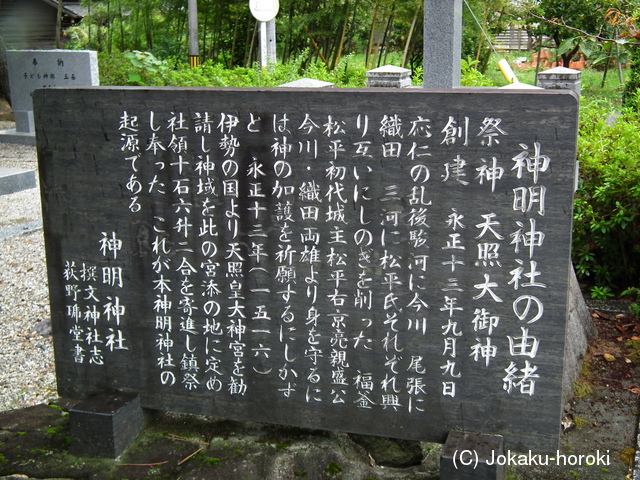 神明神社の由緒
祭神 天照大御神
創建 永正十三年九月九日
応仁の乱後駿河に今川 尾張に
織田 三河に松平氏それぞれ興
り互いにしのぎを削った 福釜
松平初代城主松平右京亮親盛公
今川・織田両雄より身を守るに
は神の加護を祈願するにしかず
と 永正十三年(一五一六)
伊勢の国より天照皇大神宮を勧
請し神域を此の宮添の地に定め
社領十石六升二合を寄進し鎮祭
し奉った これが本神明神社の
起源である
神明神社
撰文神社志
荻野 堂書
奉納
(C) Jokaku-horoki